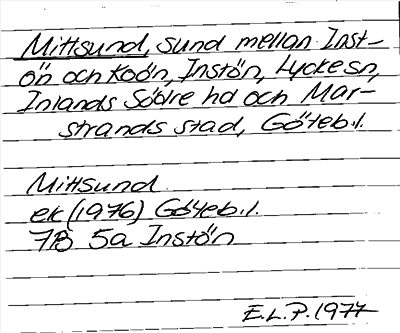 Mittsund, sund mellan Inst-
ön och Koön, Instön, Lyckesn,
Inlands Södre hd och Mar-
strands stad, Göteb.l.
Mittsund
ek (1976) Göteb.l.
7B 5a Instön
E.L.P. 1977